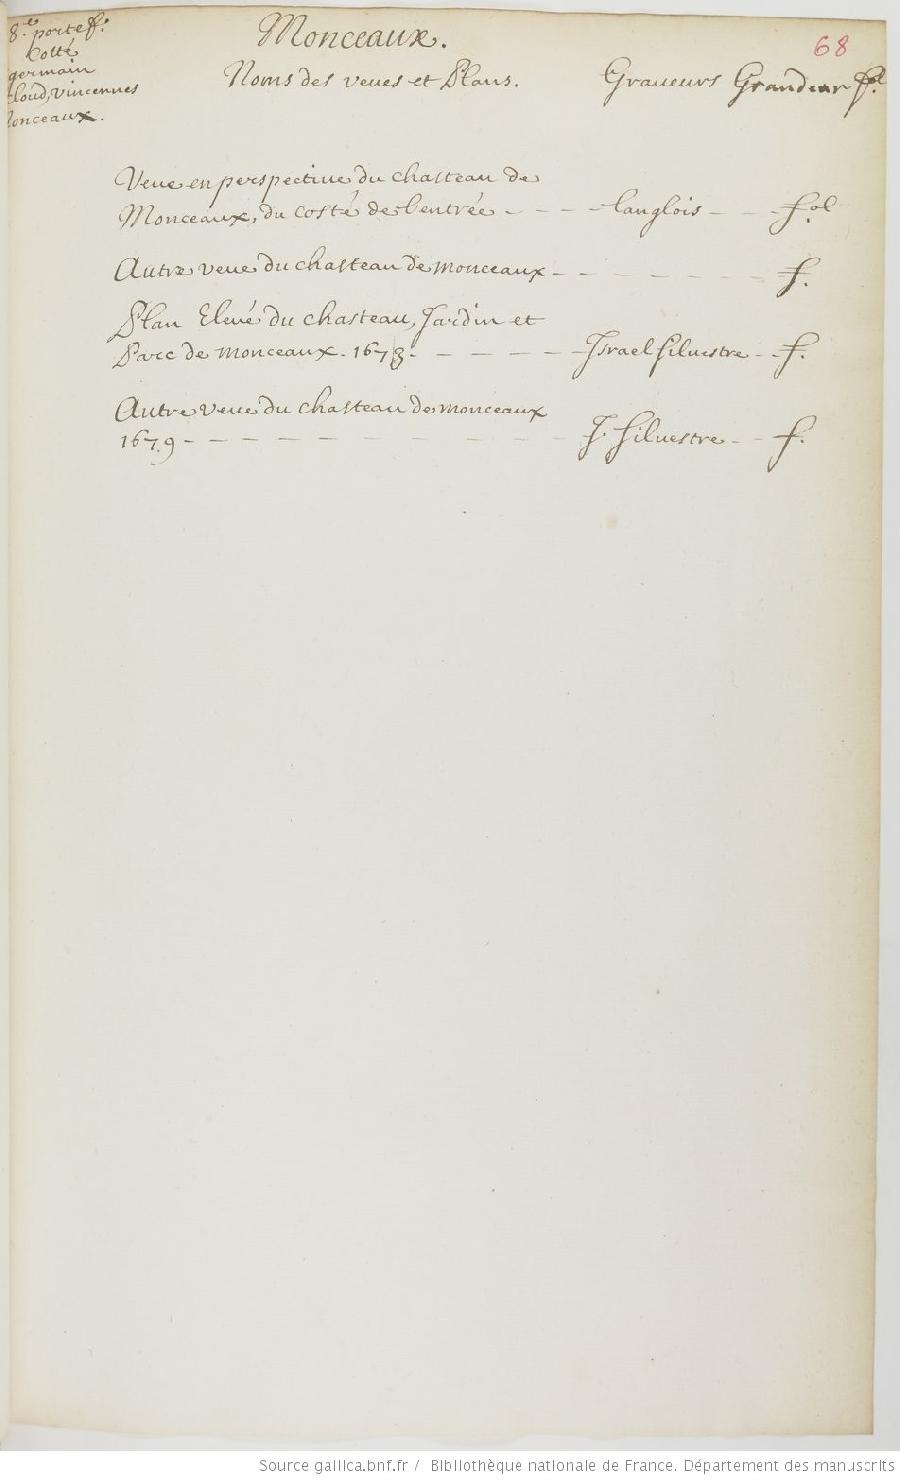 8.e portef.
Cotté
germain
Cloud, Vincennes
Monceaux.
Monceaux.
68
Noms des veues et Plans. Graueurs Grandeur fol.
Veue en perspectiue du chasteau de
Monceaux, du costé de l'entrée - - - - langlois - - - fol.
Autre veue du chasteau de Monceaux - - - - - - - f.
Plan Eleué du chasteau, Jardin et
Parc de Monceaux. 1673. - - - - - Israel Siluestre - - f.
Autre veue du chasteau de Monceaux
1679 - - - - - - - - - - - - J. Siluestre - - f.
Source gallica.bnf.fr / Bibliothèque nationale de France. Département des manuscrits